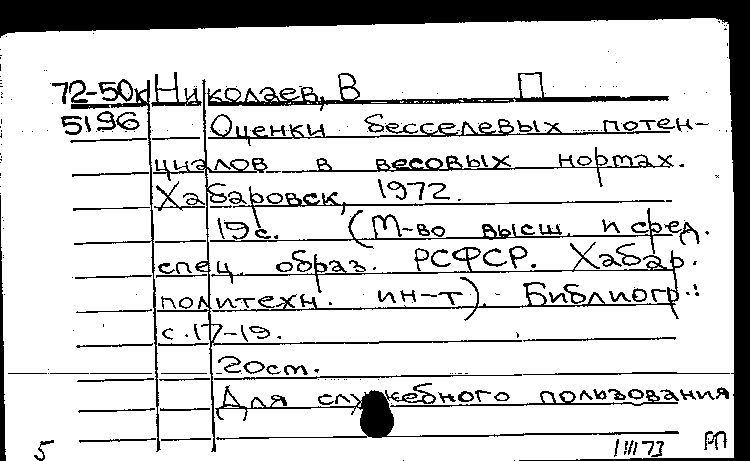 72-50к Николаев, В П
5196 Оценки бесселевых потен-
циалов в весовых нортах.
Хабаровск, 1972.
19с. (М-во высш. и сред.
спец. образ. РСФСР. Хабар.
политехн. ин-т). Библиогр.:
с.17-19.
20см.
Для служебного пользования
5 1 III 73 РП